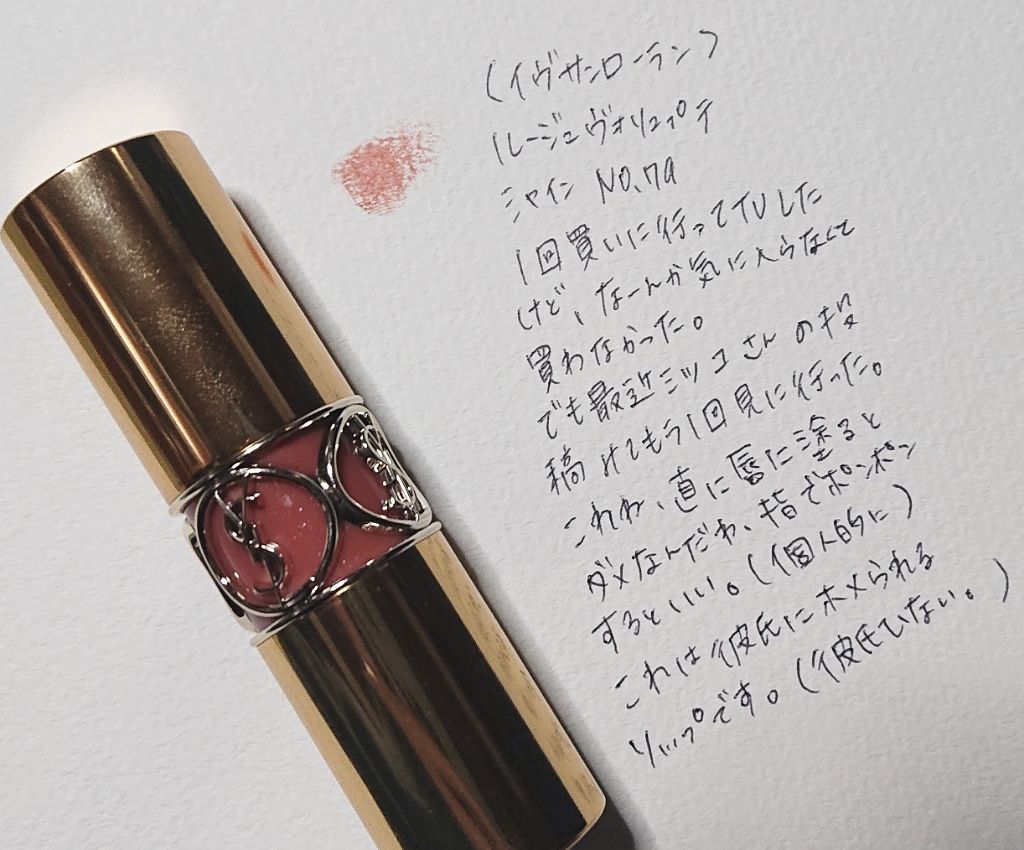 (イヴサンローラン)
ルージュヴォリュプテ
シャイン NO.79
1回買いに行ってTUした
けど、なーんか気に入らなくて
買わなかった。
でも最近ミツコさんの投
稿見てもう1回見に行った。
これね、直に唇に塗ると
ダメなんだわ、指でポンポン
するといい。(個人的に)
これは彼氏にホメられる
リップです。(彼氏いない。)
YSL